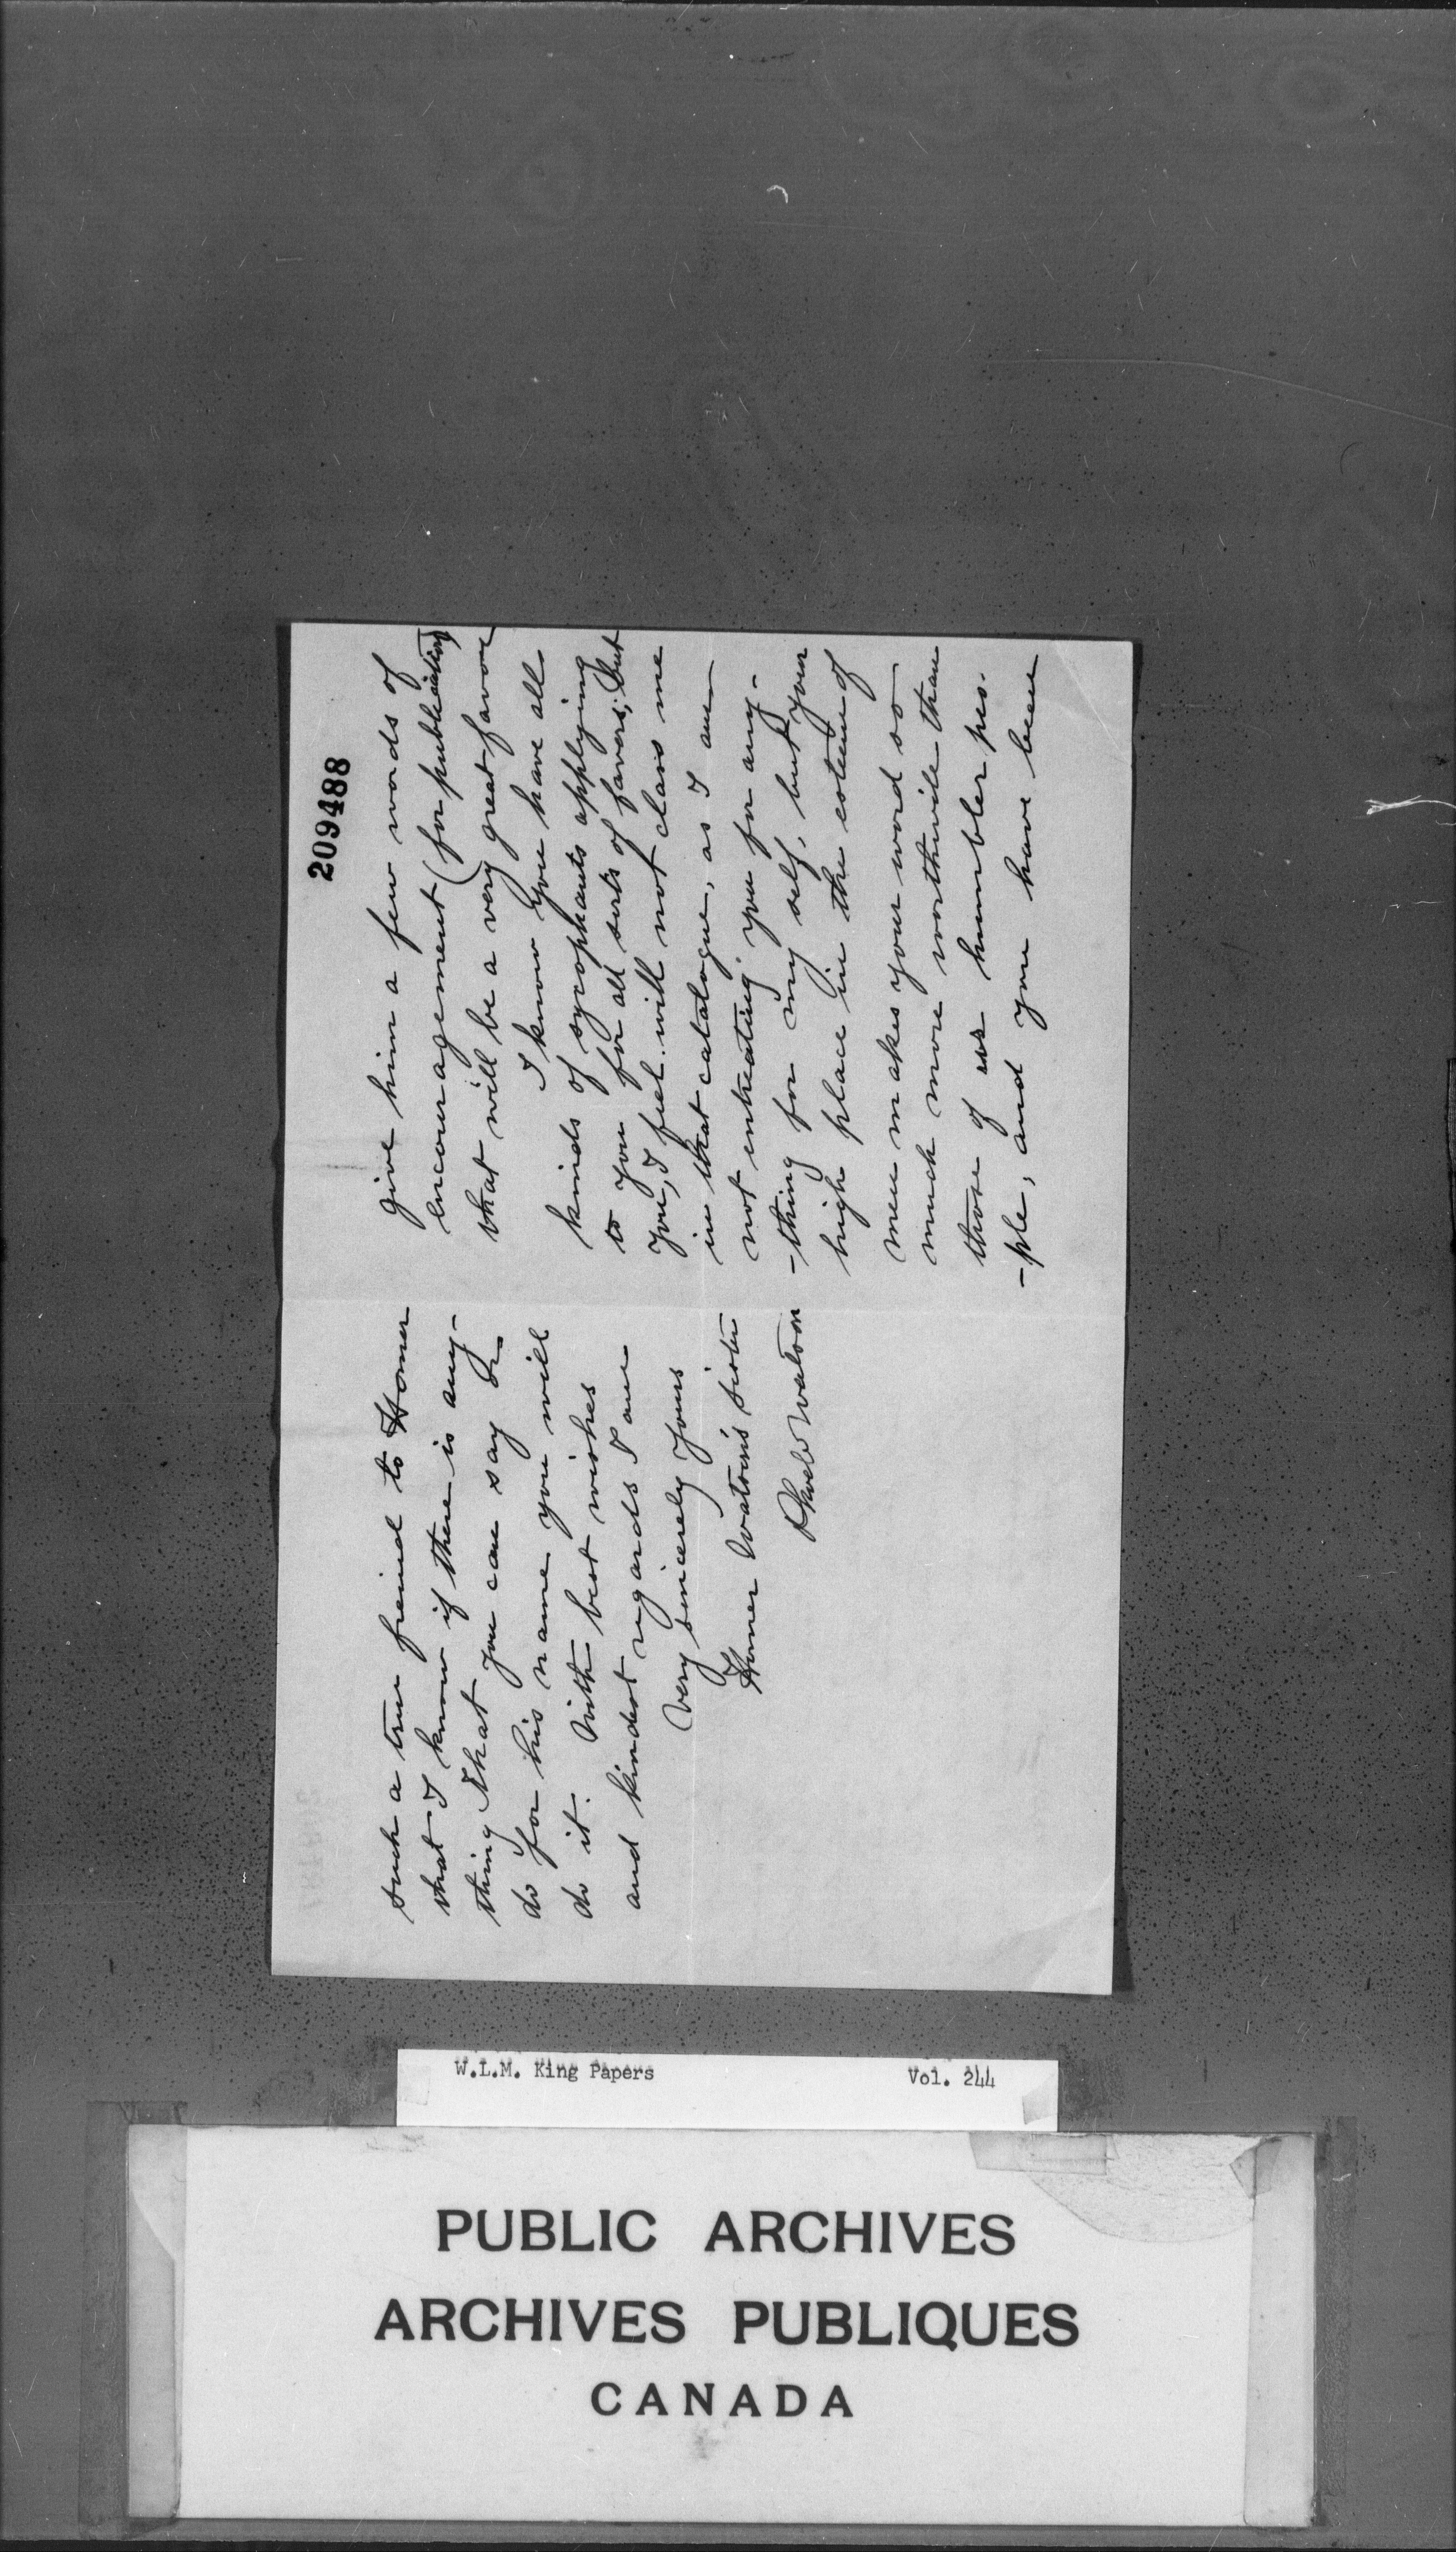 209488
give him a few words of
encouragement (for publication)
that will be a very great favor
I know you have all
kinds of sycophants applying
to you for all sorts of favors; but
you, I feel will not class me
in that catalogue, as I am
not entreating you for any-
-thing for my self, but your
high place in the esteem of
men makes your word so
much more worthwile than
those of us humbler peo-
-ple, and you have been
such a true freind to Homer
that I know if there is any-
thing that you can say or
do for his name you will
do it. With best wishes
and kindest regards I am
Very sincerely yours
Homer Watson's sister
Phoebe Watson
W.L.M. King Papers Vol. 244
PUBLIC ARCHIVES
ARCHIVES PUBLIQUES
CANADA